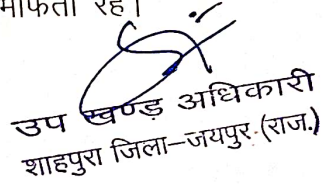 रहे।
उप खण्ड़ अधिकारी
शाहपुरा जिला–जयपुर (राज.)